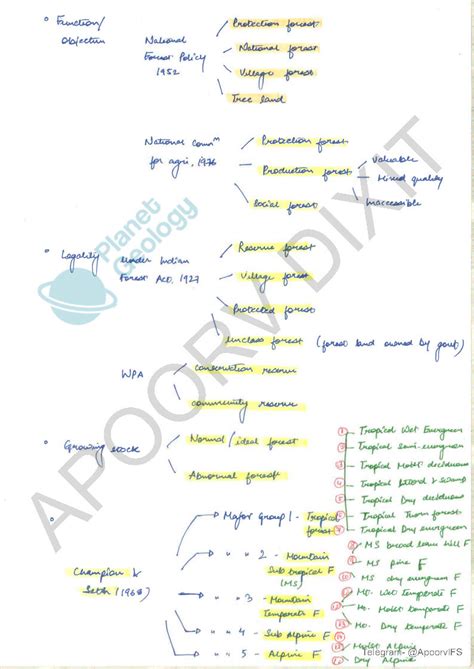 Function/ Objective
National Forest Policy 1952
Protection forest
National forest
Village forest
Tree land
National Commn for agri, 1976
Protection forest
Production forest
Valuable
Mixed quality
Inaccessible
Social forest
Legality
under Indian Forest Act, 1927
Reserve forest
Village forest
Protected forest
Unclass forest (forest land owned by govt)
WPA
Conservation reserve
community reserve
Growing stock
Normal/ideal forest
Abnormal forest
Champion & Seth (1968)
Major Group 1 - Tropical forest
1 Tropical Wet Evergreen
2 Tropical Semi-evergreen
3 Tropical Moist deciduous
4 Tropical littoral & swamp
5 Tropical Dry deciduous
6 Tropical Thorn forest
7 Tropical Dry evergreen
" " 2 - Mountain Sub tropical F (MS)
8 MS broad leave Hill F
9 MS pine F
10 MS dry evergreen F
" " 3 - Mountain Temperate F
11 Mo. Wet temperate F
12 Mo. Moist temperate F
13 Mo. Dry temperate F
" " 4 - Sub Alpine F
" " 5 - Alpine F
Moist Alpine
Dry Alpine
Planet Geology
APOORV DIXIT
Telegram- @ApoorvIFS